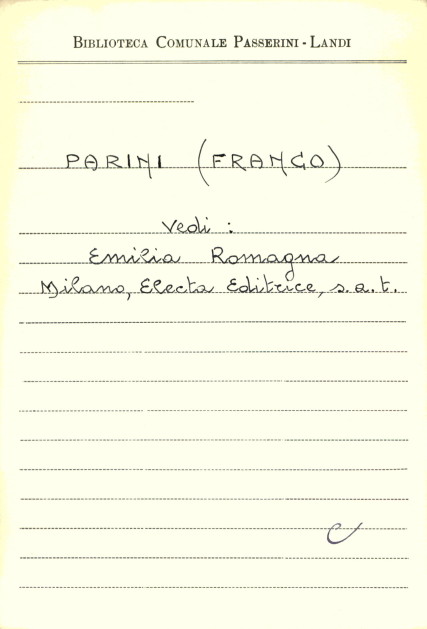 BIBLIOTECA COMUNALE PASSERINI - LANDI
PARINI (FRANCO)
Vedi :
Emilia Romagna
Milano, Electa Editrice, s.a.t.
C